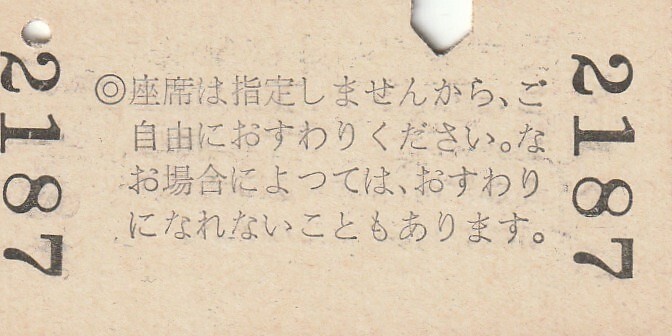 2187
◎座席は指定しませんから、ご
自由におすわりください。な
お場合によつては、おすわり
になれないこともあります。
2187